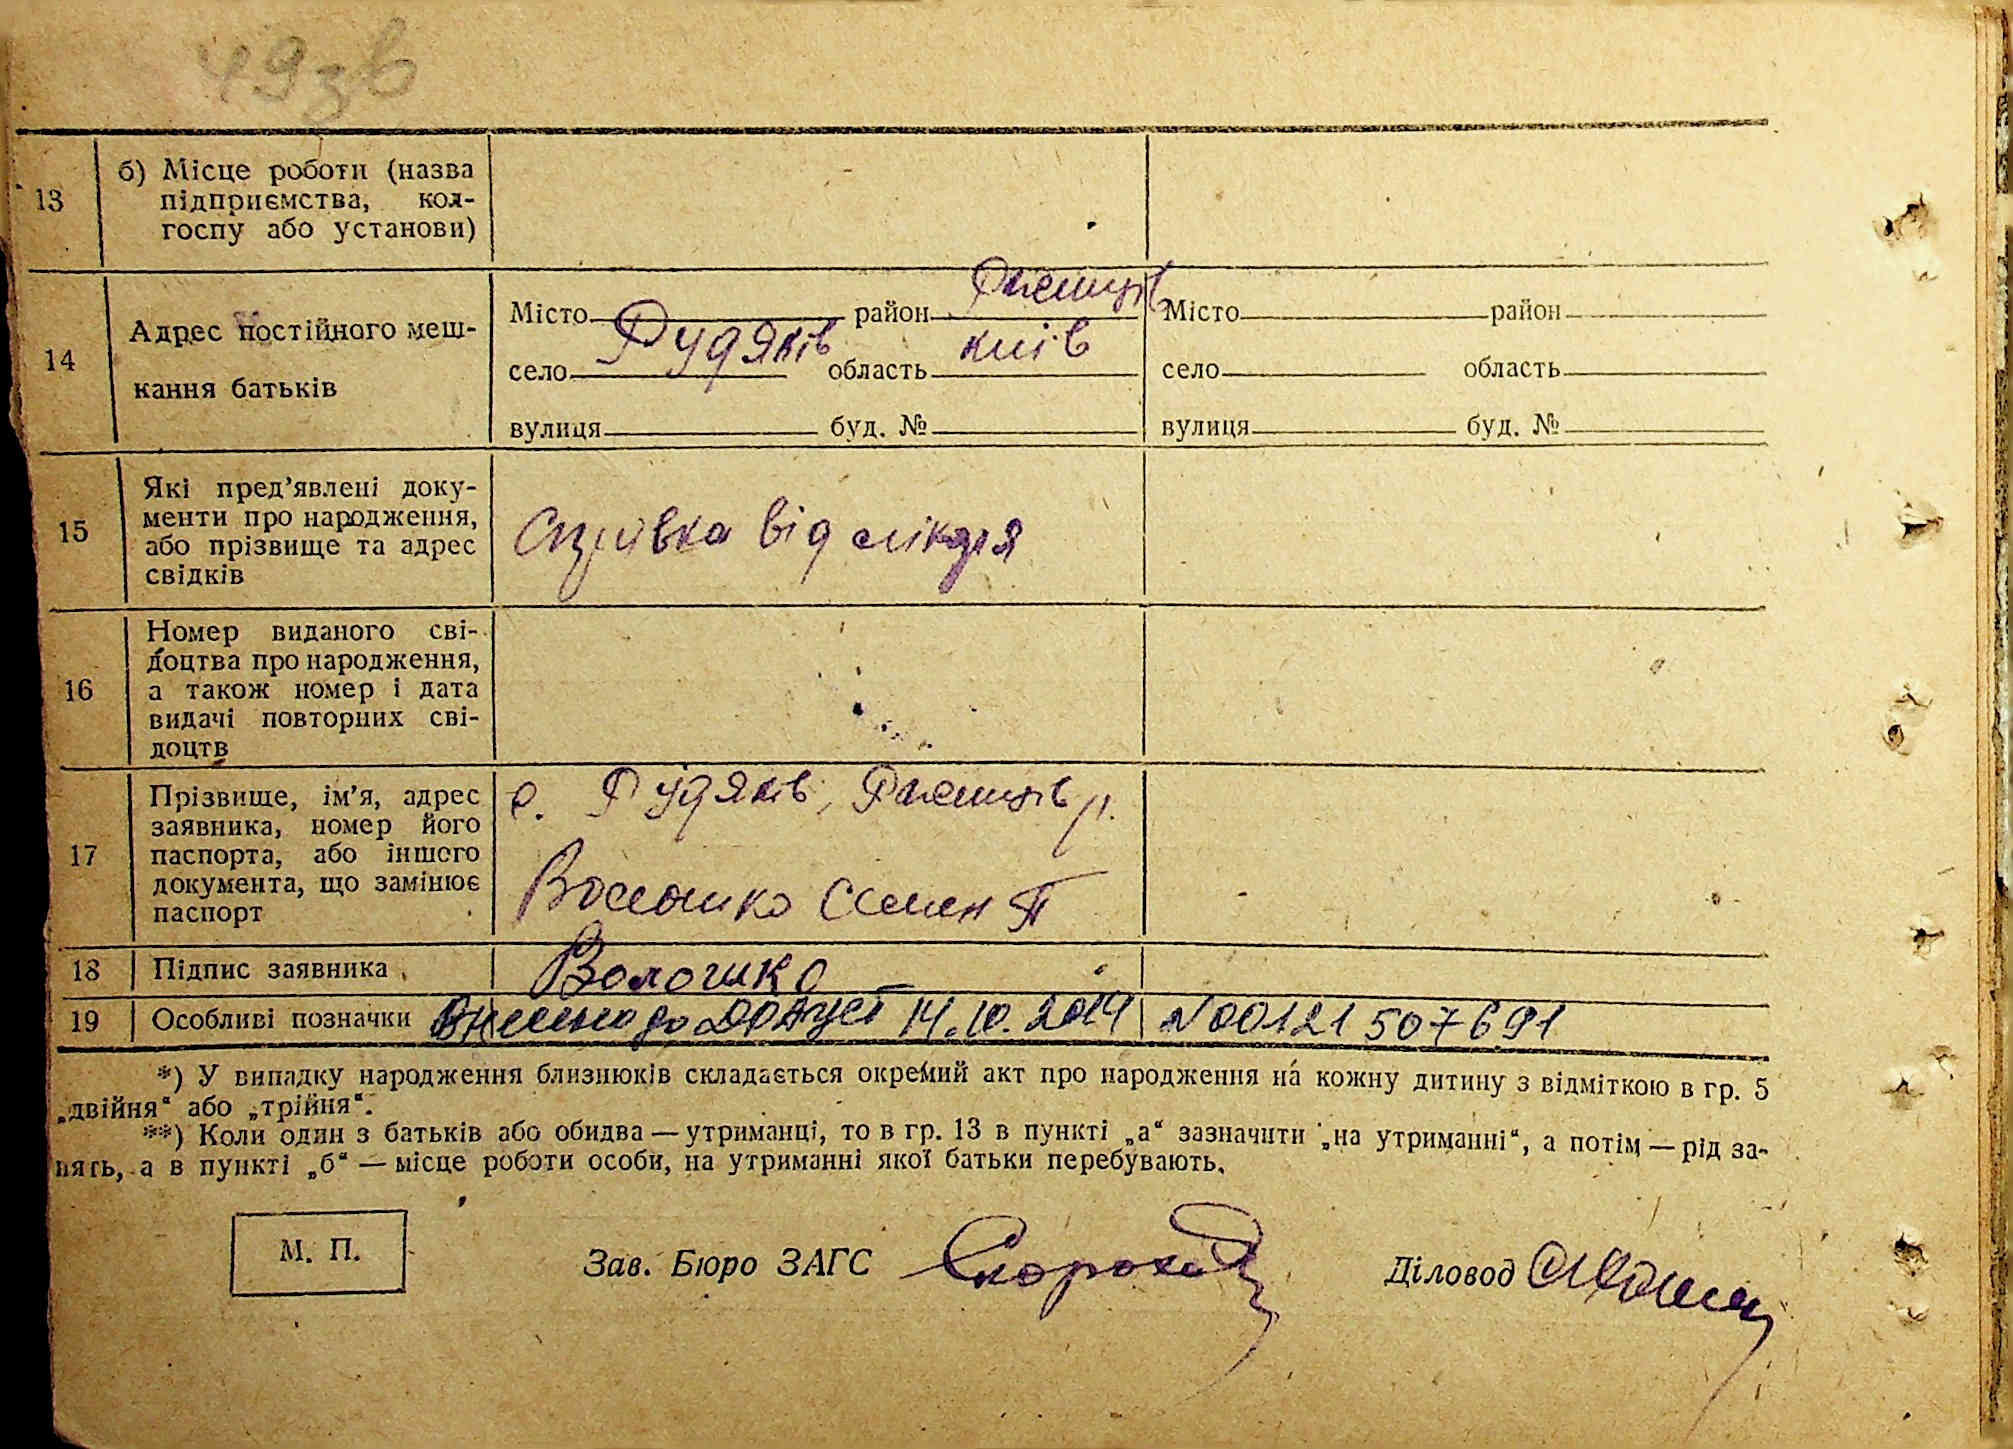 49зв
13
б) Місце роботи (назва
підприємства, кол-
госпу або установи)
14
Адрес постійного меш-
кання батьків
Місто район Ржищів
село Рудяків область київ
вулиця буд. №
Місто район
село область
вулиця буд. №
15
Які пред'явлені доку-
менти про народження,
або прізвище та адрес
свідків
Справка від лікаря
16
Номер виданого сві-
доцтва про народження,
а також номер і дата
видачі повторних сві-
доцтв
17
Прізвище, ім'я, адрес
заявника, номер його
паспорта, або іншого
документа, що замінює
паспорт
с. Рудяків, Ржищів р.
Волошко Семен П
18 Підпис заявника Волошко
19 Особливі позначки Внесено до ДРАЦСГ 14.10.2014 N00121507691
*) У випадку народження близнюків складається окремий акт про народження на кожну дитину з відміткою в гр. 5
„двійня“ або „трійня“.
**) Коли один з батьків або обидва — утриманці, то в гр. 13 в пункті „а“ зазначити „на утриманні“, а потім — рід за-
нять, а в пункті „б“ — місце роботи особи, на утриманні якої батьки перебувають.
М. П.
Зав. Бюро ЗАГС
Діловод